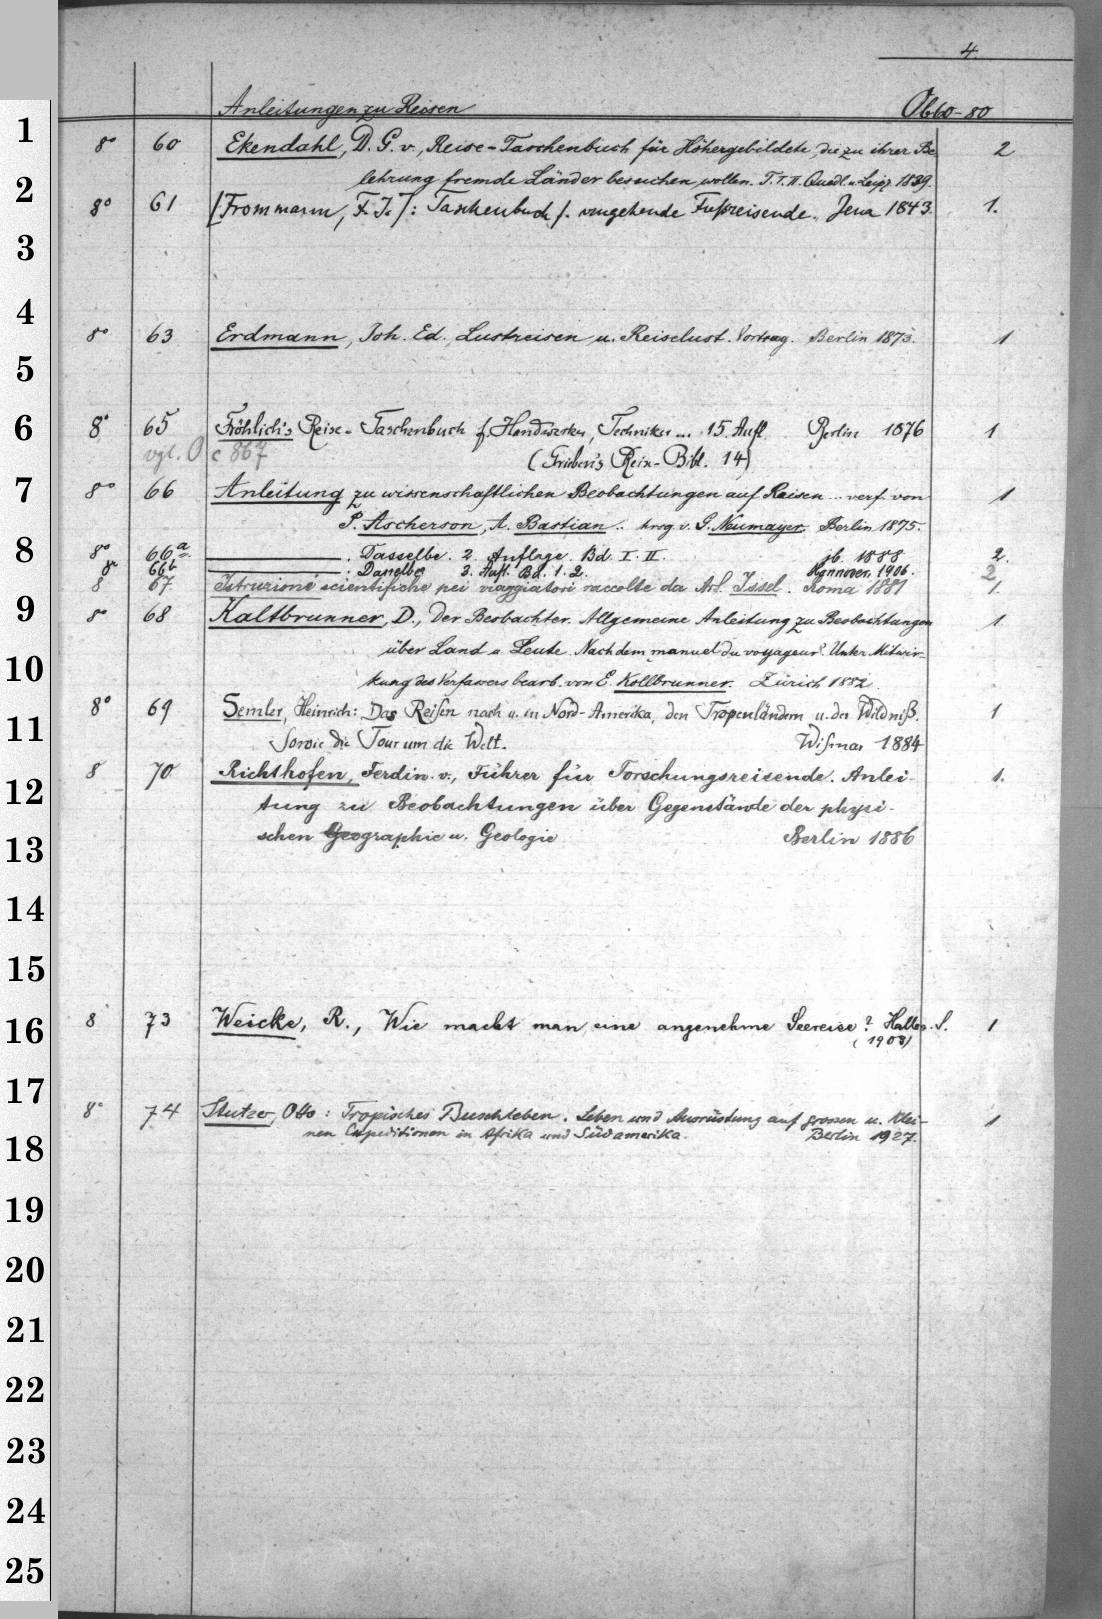 4.
Anleitungen zu Reisen Ob 60-80
8° 60 Ekendahl, D. G. v., Reise-Taschenbuch für Höhergebildete, die zu ihrer Be- 2
lehrung fremde Länder besuchen wollen. T. I. II. Quedl. u. Leipz. 1839.
8° 61 [Frommann, F. J.]: Taschenbuch f. angehende Fußreisende. Jena 1843. 1.
8° 63 Erdmann, Joh. Ed. Lustreisen u. Reiselust. Vortrag. Berlin 1873. 1
8° 65 Fröhlich's Reise-Taschenbuch f. Handwerker, Techniker ... 15. Aufl. Berlin 1876 1
vgl. O c 867 (Grieben's Reise-Bibl. 14)
8° 66 Anleitung zu wissenschaftlichen Beobachtungen auf Reisen ... verf. von 1
P. Ascherson, A. Bastian .. hrsg v. G. Neumayer. Berlin 1875.
8° 66a ———. Dasselbe. 2. Auflage. Bd. I. II. ib. 1888 2.
8° 66b ———. Dasselbe 3. Aufl. Bd. 1. 2. Hannover, 1906. 2
8 67 Istruzioni scientifiche pei viaggiatori raccolte da Art. Issel. Roma 1881 1.
8° 68 Kaltbrunner, D., Der Beobachter. Allgemeine Anleitung zu Beobachtungen 1
über Land u. Leute. Nach dem "manuel du voyageur". Unter Mitwir-
kung des Verfassers bearb. von E. Kollbrunner. Zürich 1882.
8° 69 Semler, Heinrich: Das Reisen nach u. in Nord-Amerika, den Tropenländern u. der Wildniß. 1
Sowie die Tour um die Welt. Wismar 1884
8 70 Richthofen, Ferdin. v., Führer für Forschungsreisende. Anlei- 1.
tung zu Beobachtungen über Gegenstände der physi-
schen Geographie u. Geologie Berlin 1886
8 73 Weicke, R., Wie macht man eine angenehme Seereise? Halle a. S. 1
(1908)
8° 74 Stutzer, Otto: Tropisches Buschleben. Leben und Ausrüstung auf grossen u. klei- 1
nen Expeditionen in Afrika und Südamerika. Berlin 1927.
1
2
3
4
5
6
7
8
9
10
11
12
13
14
15
16
17
18
19
20
21
22
23
24
25